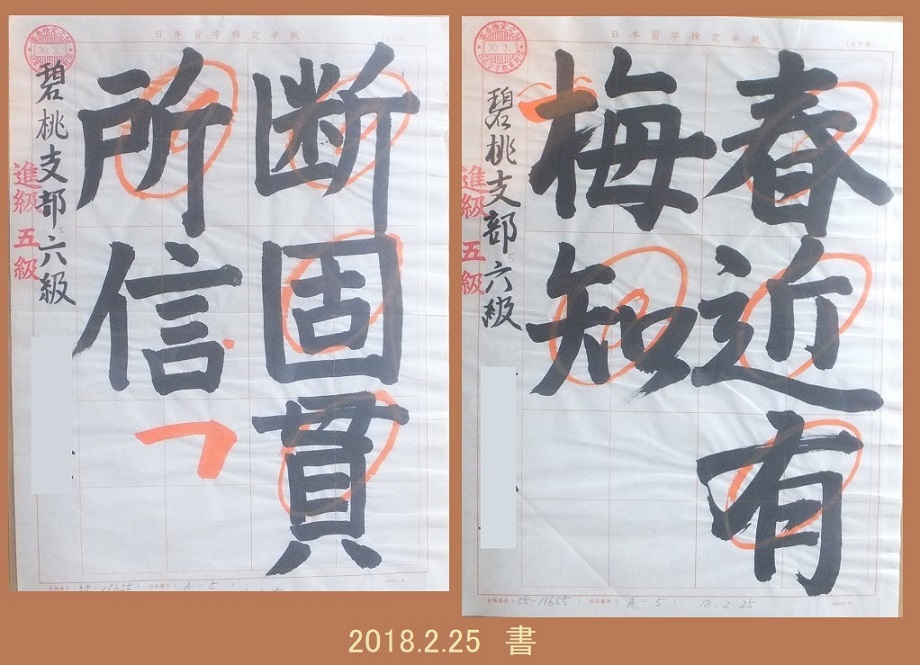 日本習字検定半紙
30.3.1
断固貫
所信
碧桃支部六級
進級 五級
55-18655
A-5
日本習字検定半紙
30.3.1
春近有
梅知
碧桃支部六級
進級 五級
55-18655
A-5
18.2.25
2018.2.25 書